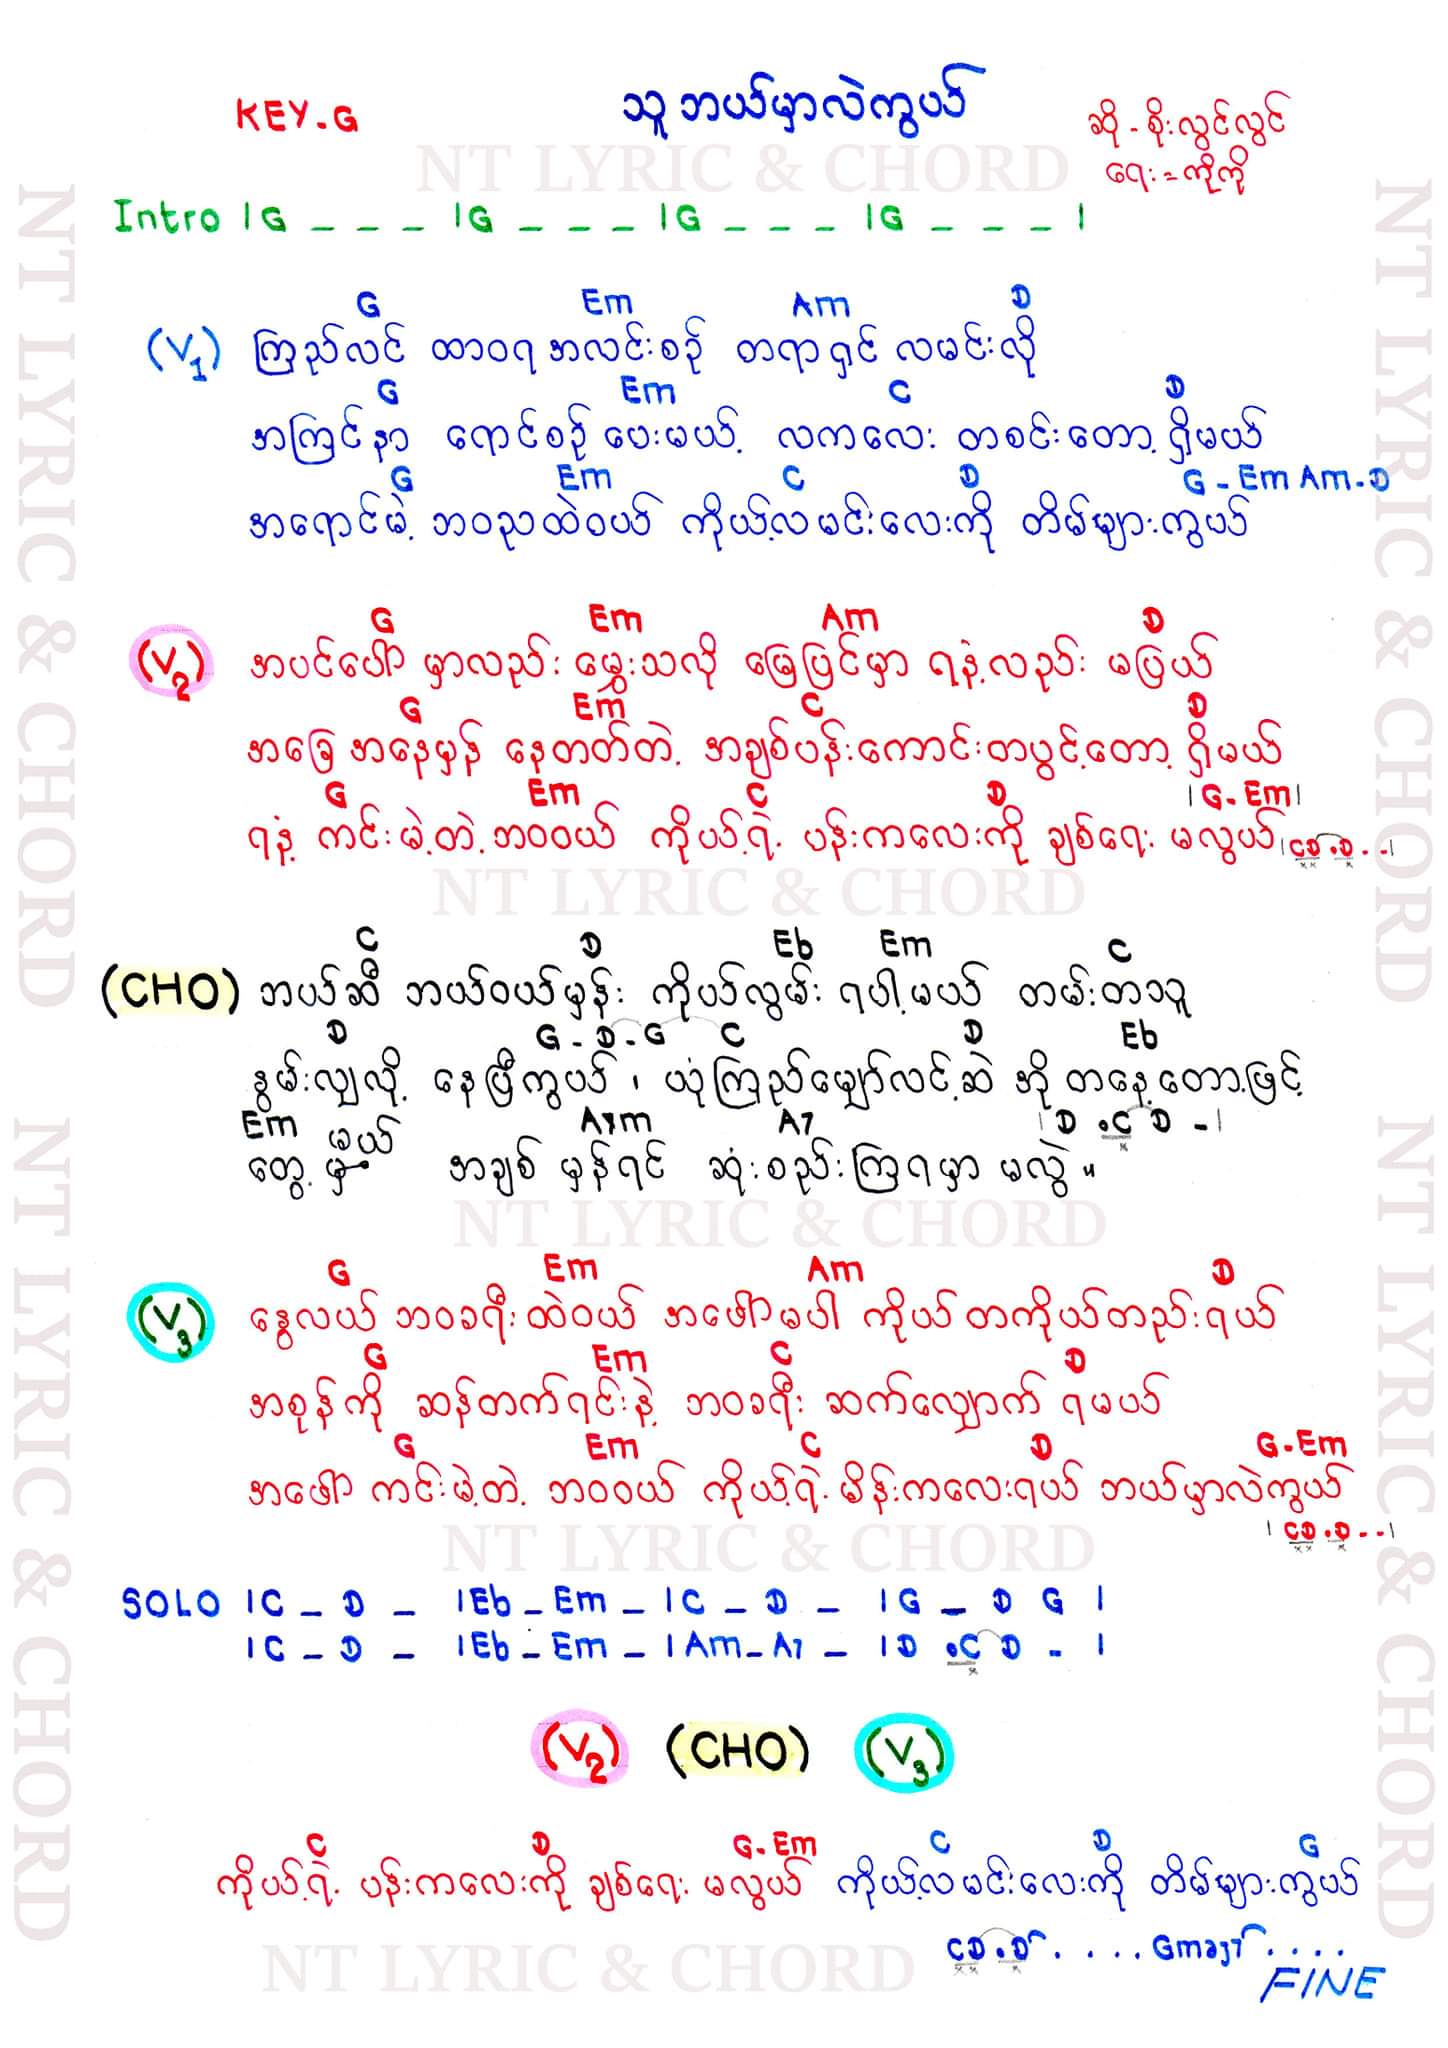 KEY-G
သူဘယ်မှာလဲကွယ်
ဆို - စိုးလွင်လွင်
ရေး = ကိုကို
NT LYRIC & CHORD
Intro |G _ _ _ |G _ _ _ |G _ _ _ |G _ _ _ |
G Em Am D
(V1) ကြည်လင် ထာဝရအလင်းစဉ် တရာရှင် လမင်းလို
G Em C D
အကြင်နာ ရောင်စဉ်ပေးမယ့် လကလေး တစင်းတော့ ရှိမယ်
G Em C D G - Em Am - D
အရောင်မဲ့ ဘဝညထဲဝယ် ကိုယ့်လမင်းလေးကို တိမ်များကွယ်
G Em Am D
(V2) အပင်ပေါ်မှာလည်း မွှေးသလို မြေပြင်မှာ ရနံ့လည်း မပြယ်
G Em C D
အခြေအနေမှန် နေတတ်တဲ့ အချစ်ပန်းကောင်းတပွင့်တော့ ရှိမယ်
G Em C D |G - Em|
ရနံ့ ကင်းမဲ့တဲ့ဘဝဝယ် ကိုယ့်ရဲ့ ပန်းကလေးကို ချစ်ရေး မလွယ် |CD . D . - |
NT LYRIC & CHORD
C D Eb Em C
(CHO) ဘယ်ဆီ ဘယ်ဝယ်မှန်း ကိုယ်လွမ်း ရပါ့မယ် တမ်းတသူ
D G - D - G C D Eb
နွမ်းလျလို့ နေပြီကွယ် ၊ ယုံကြည်မျှော်လင့်ဆဲ အို တနေ့တော့ဖြင့်
Em A7m A7 |D . C D - |
တွေ့မယ် အချစ် မှန်ရင် ဆုံးစည်းကြရမှာ မလွဲ ။
NT LYRIC & CHORD
G Em Am D
(V3) နွေလယ် ဘဝခရီးထဲဝယ် အဖော်မပါ ကိုယ်တကိုယ်တည်းရယ်
G Em C D
အစုန်ကို ဆန်တက်ရင်းနဲ့ ဘဝခရီး ဆက်လျှောက် ရမယ်
G Em C D G - Em
အဖော် ကင်းမဲ့တဲ့ ဘဝဝယ် ကိုယ့်ရဲ့မိန်းကလေးရယ် ဘယ်မှာလဲကွယ်
| CD . D - - |
NT LYRIC & CHORD
SOLO |C _ D _ |Eb _ Em _ |C _ D _ |G _ D G |
|C _ D _ |Eb _ Em _ |Am _ A7 _ |D . C D - |
(V2) (CHO) (V3)
C D G - Em C D G
ကိုယ့်ရဲ့ ပန်းကလေးကို ချစ်ရေး မလွယ် ကိုယ့်လမင်းလေးကို တိမ်များကွယ်
CD . D . . . . Gmaj7 . . . .
NT LYRIC & CHORD
FINE
NT LYRIC & CHORD
NT LYRIC & CHORD
NT LYRIC & CHORD
NT LYRIC & CHORD